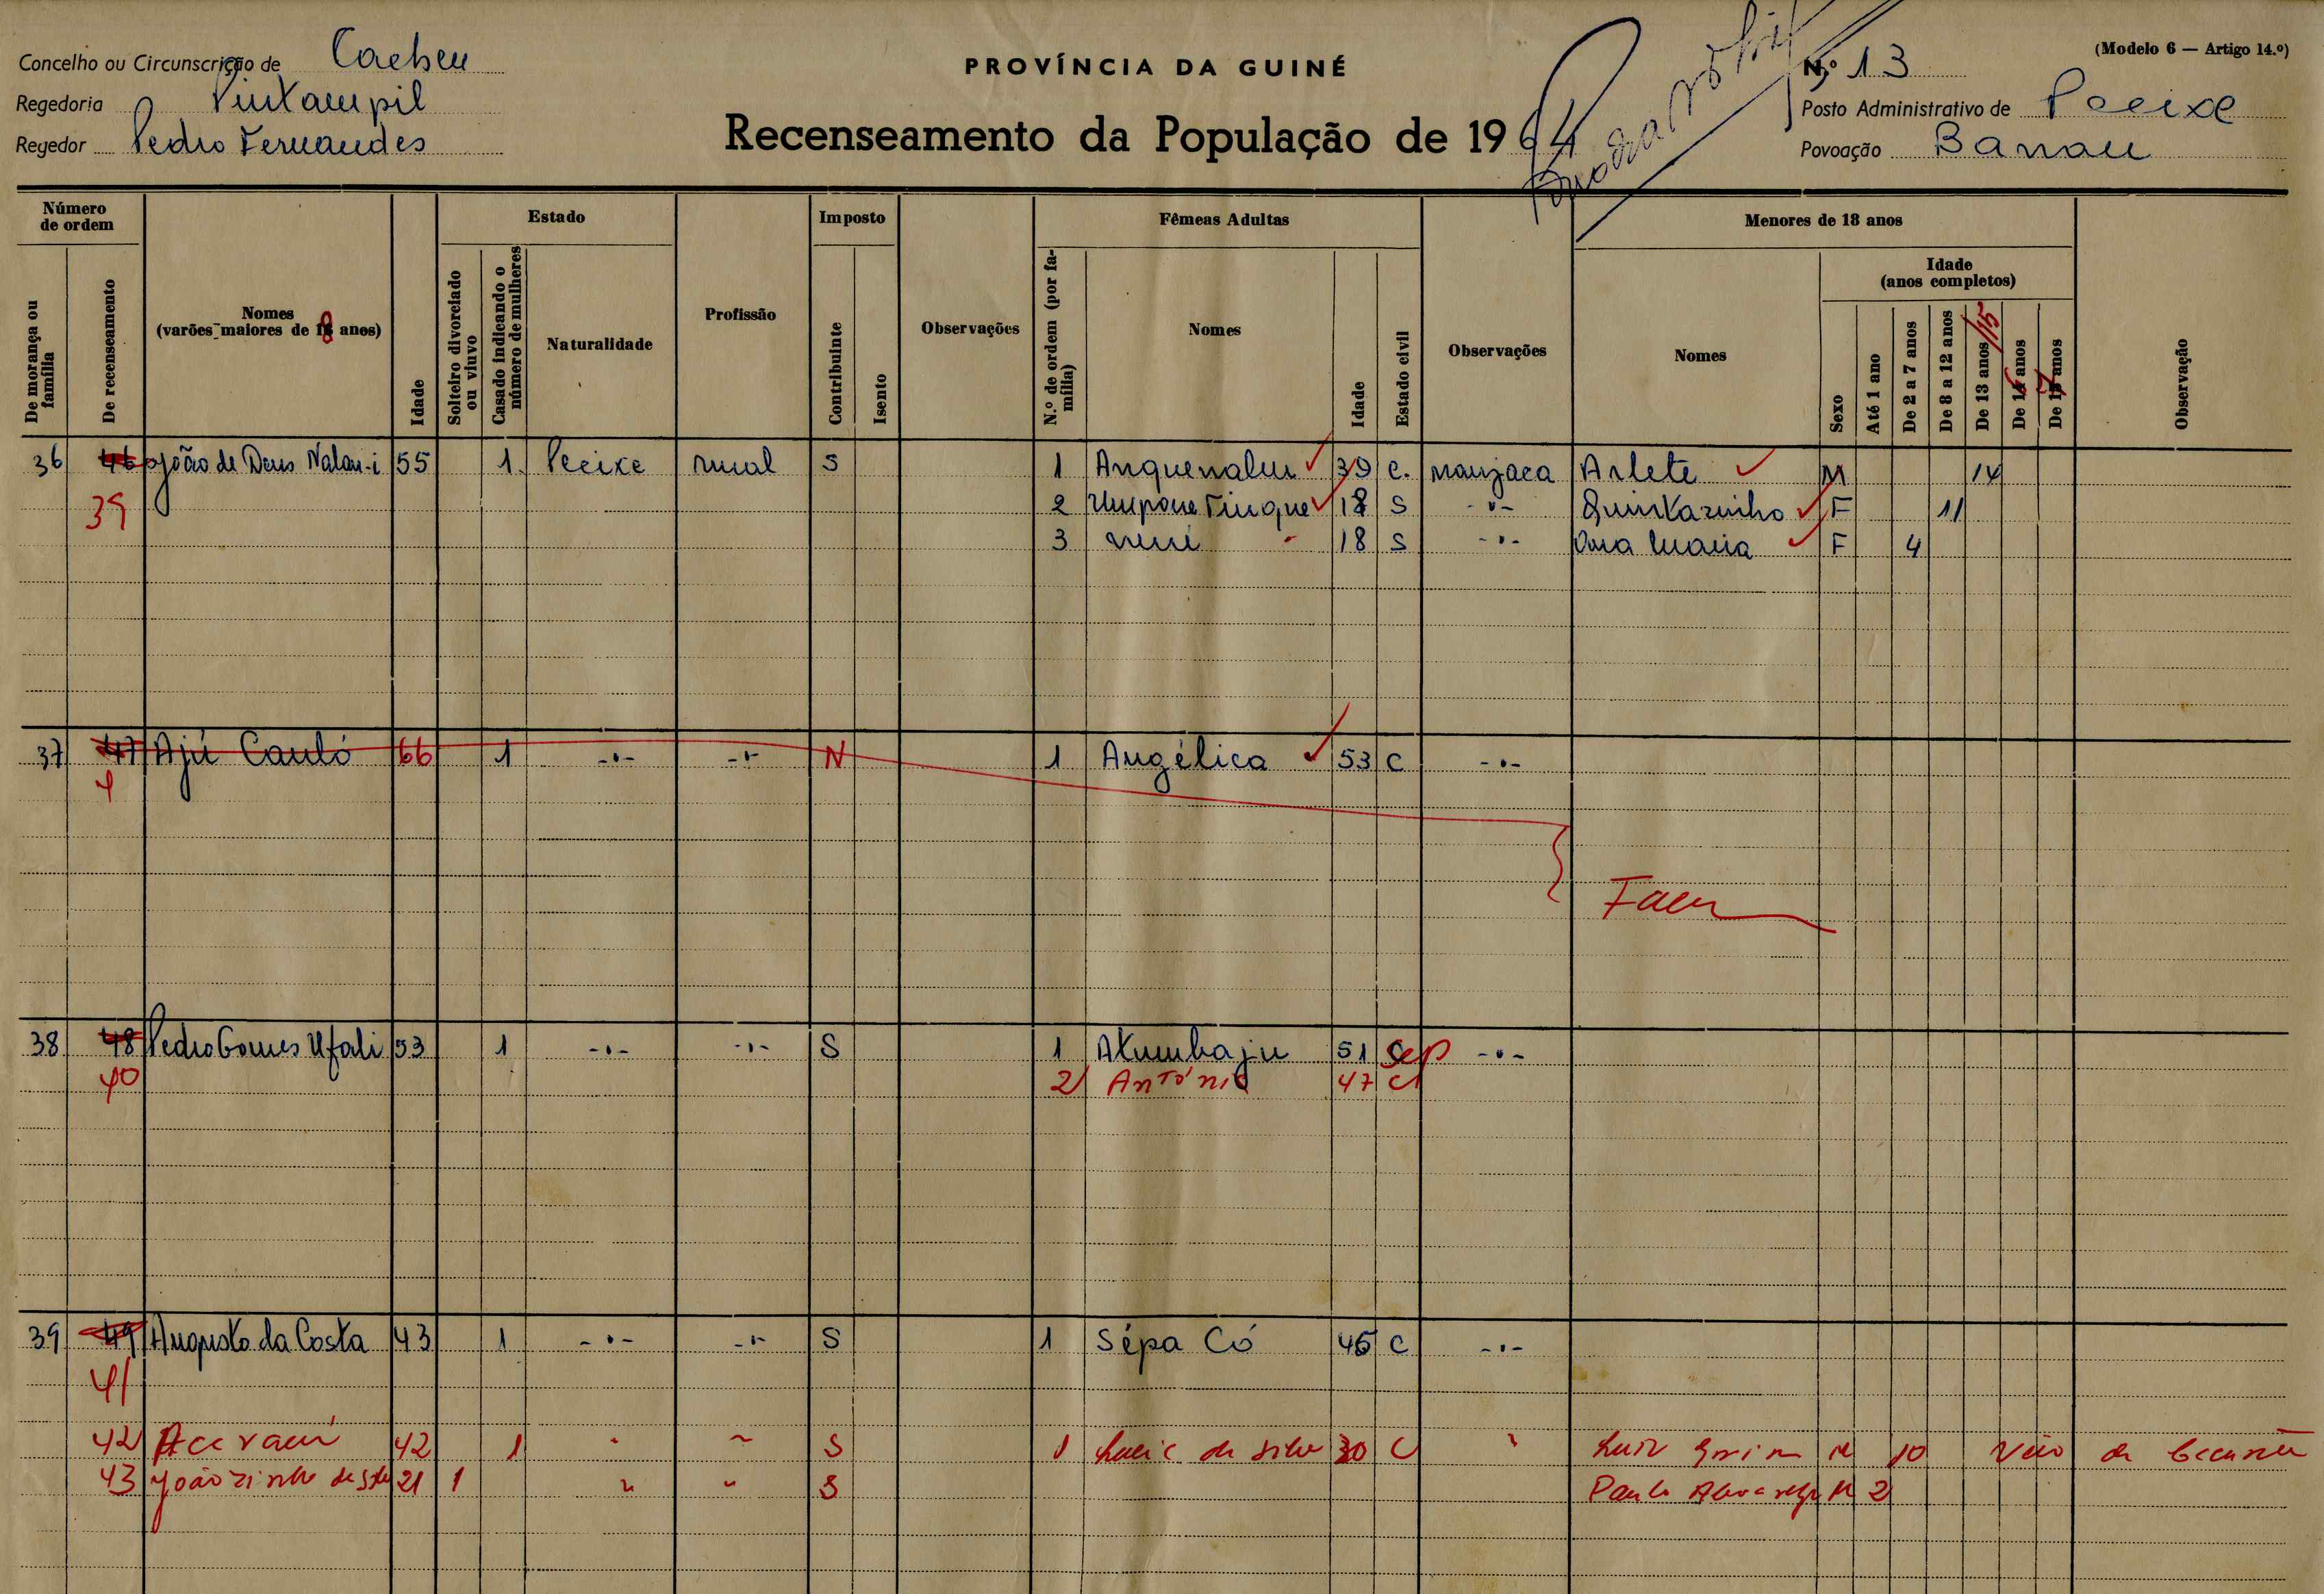 Concelho ou Circunscrição de Cacheu
Regedoria Pintampil
Regedor Pedro Fernandes
PROVÍNCIA DA GUINÉ
Recenseamento da População de 1964
(Modelo 6 — Artigo 14.º)
N.º 13
Posto Administrativo de Pecixe
Povoação
Número de ordem
De morança ou família
De recenseamento
Nomes (varões maiores de 18 anos)
Idade
Estado
Solteiro divorciado ou viuvo
Casado indicando o número de mulheres
Naturalidade
Profissão
Imposto
Contribuinte
Isento
Observações
Fêmeas Adultas
N.º de ordem (por família)
Nomes
Idade
Estado civil
Observações
Menores de 18 anos
Nomes
Sexo
Idade (anos completos)
Até 1 ano
De 2 a 7 anos
De 8 a 12 anos
De 13 anos /15
De 16 anos
De 17 anos
Observação
36 46 João de Deus 55 1 Pecixe rural S 1 Anquenalu 39 C. manjaca Arlete M 14
39 2 18 S -"- Quintazinho F 11
3 18 S -"- Ana Maria F 4
37 47 Ajú Cauló 66 1 -"- -"- N 1 Angélica 53 C -"-
38 48 Pedro Gomes Ufali 53 1 -"- -"- S 1 Atumbaju 51 C Sep -"-
40 2 António 47 C
39 49 Augusto da Costa 43 1 -"- -"- S 1 Sépa Có 45 C -"-
41
42 42 1 " " S 1 da Silva 30 C " Luiz M 10 Veio de
43 Joãozinho 21 1 " " S Paulo M 2